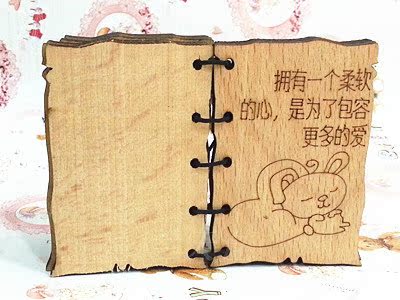 拥有一个柔软
的心，是为了包容
更多的爱